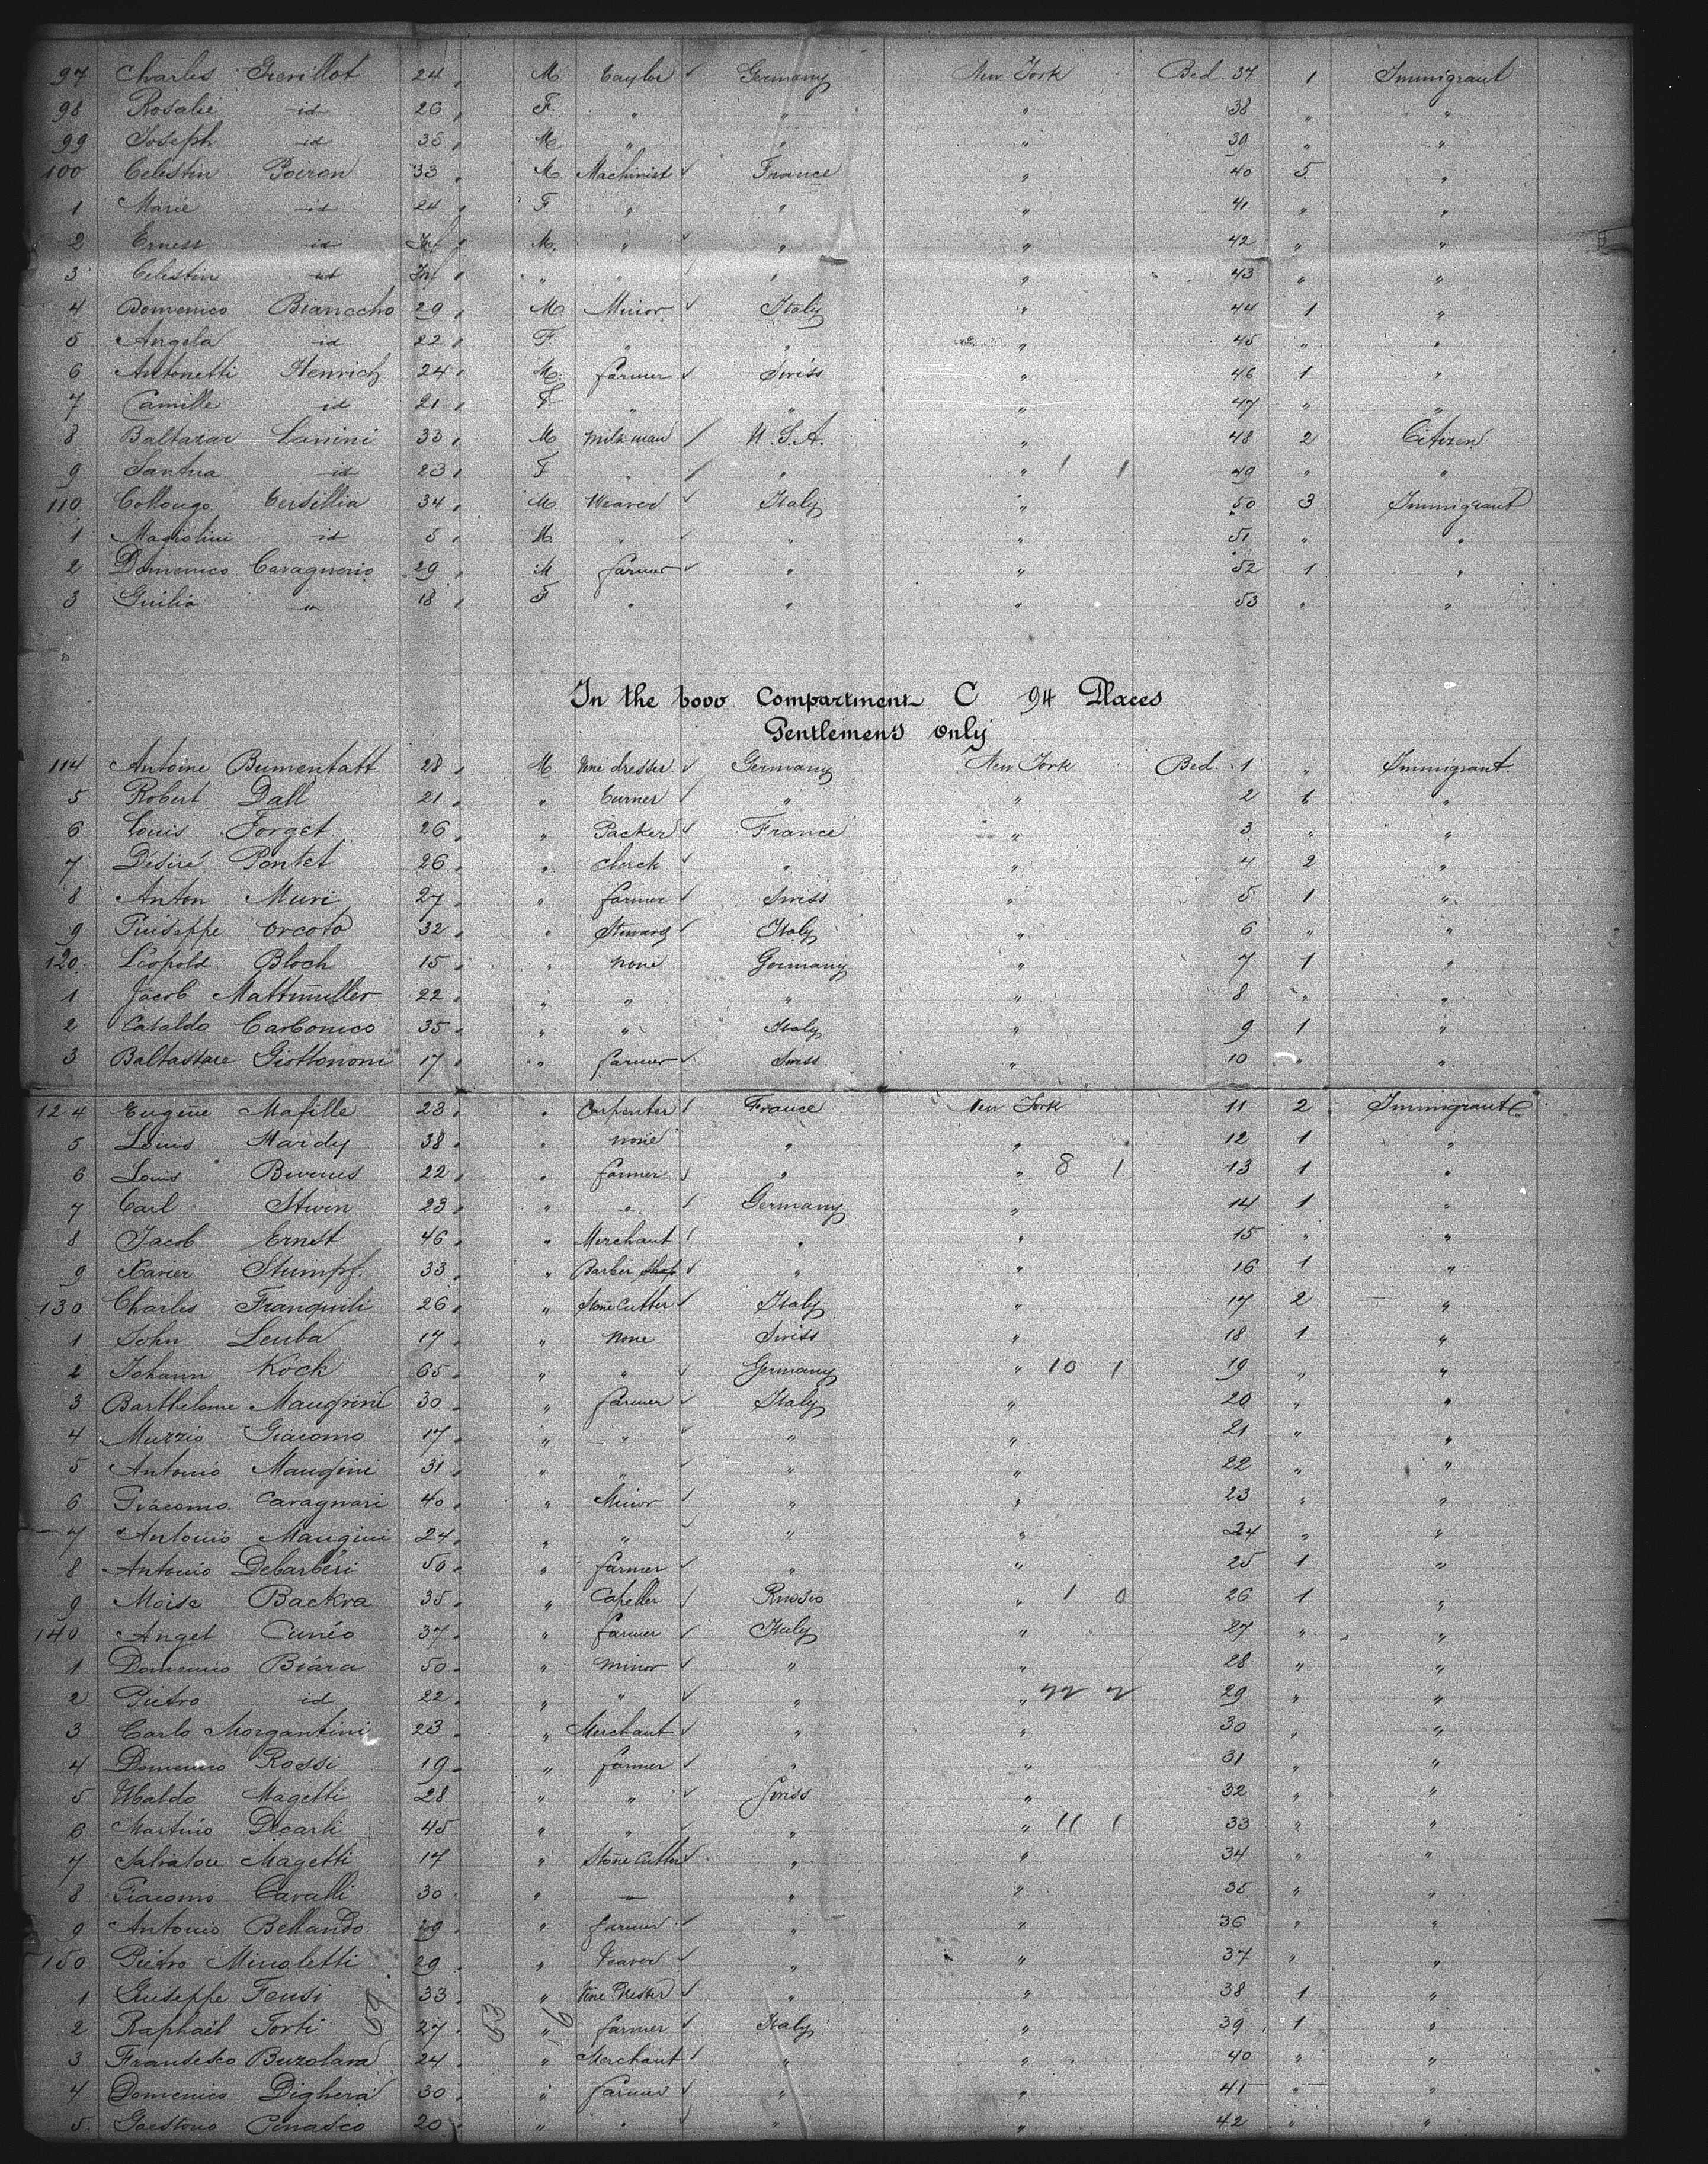 97 Charles Grevillot 24 " M Taylor ✓ Germany New York Bed. 37 1 Immigrant
98 Rosalie id 26 " F. " " " 38 " "
99 Joseph id 36 " M " " " 39 " "
100 Celestin Poiron 33 " M Machinist ✓ France " 40 5 "
1 Marie id 24 " F " " " 41 " "
2 Ernest id Inf " M. " ✓ " " 42 " "
3 Celestin id Inf " " " ✓ " " 43 " "
4 Domenico Bianocho 29 " M Minor ✓ Italy " 44 1 "
5 Angela id 22 " F " " " 45 " "
6 Antonetti Henrich 24 " M. farmer ✓ Swiss " 46 1 "
7 Camille id 21 " F. " " " 47 " "
8 Baltazar Lanini 33 " M milkman / U.S.A. " 48 2 Citizen
9 Santina id 23 " F " / " " 1 1 49 " "
110 Collongo Tersillia 34 " M Weaver ✓ Italy " 50 3 Immigrant
1 Magiolini id 5 " M " ✓ " " 51 " "
2 Domenico Caragnerio 29 " M farmer ✓ " " 52 1 "
3 Guilia " 18 " F " " " 53 " "
In the bovv Compartment C 94 Places
Gentlemen's only
114 Antoine Bumentatt 28 " M. Vine dresser ✓ Germany New York Bed. 1 " Immigrant.
5 Robert Dall 21 " " Turner ✓ " " 2 1 "
6 Louis Forget 26 " " Packer ✓ France " 3 " "
7 Désiré Pontet 26 " " clerck ✓ " " 4 2 "
8 Anton Muri 27 " " farmer ✓ Swiss " 5 1 "
9 Giuseppe Orcoto 32 " " Steward ✓ Italy " 6 " "
120. Léopold Bloch 15 " " none Germany " 7 1 "
1 Jacob Mattmuller 22 " " " " " 8 " "
2 Cataldo Carbonico 35 " " " Italy " 9 1 "
3 Baltastare Giottononi 17 " " farmer ✓ Swiss " 10 " "
124 Eugène Mafille 23 " " Carpenter ✓ France New York 11 2 Immigrant
5 Louis Hardy 38 " " none " " 12 1 "
6 Louis 22 " " farmer ✓ " " 8 1 13 1 "
7 Carl Stwen 23 " " " ✓ Germany " 14 1 "
8 Jacob Ernst 46 " " Merchant ✓ " " 15 " "
9 Xavier Stumpf. 33 " " Barber ✓ " " 16 1 "
130 Charles Franquili 26 " " Stone Cutter ✓ Italy " 17 2 "
1 John Leuba 17 " " none Swiss " 18 1 "
2 Johann Kock 65 " " " ✓ Germany " 10 1 19 " "
3 Barthelome Maugrini 30 " " farmer ✓ Italy " 20 " "
4 Murzio Giacomo 17 " " " ✓ " " 21 " "
5 Antonio Maugini 31 " " " ✓ " " 22 " "
6 Giacomo Caragnari 40 " " Minor ✓ " " 23 " "
7 Antonio Maugini 24 " " " ✓ " " 24 " "
8 Antonio Debarbéri 50 " " farmer ✓ " " 25 1 "
9 Moise Backra 35 " " Capeller ✓ Russio " 1 0 26 1 "
140 Angel Cunéo 37 " " farmer ✓ Italy " 27 " "
1 Domenico Biára 50 " " minor ✓ " " 28 " "
2 Pietro id 22 " " " ✓ " " 22 2 29 " "
3 Carlo Morgantini 23 " " Merchant ✓ " " 30 " "
4 Domenico Rossi 19 " " farmer ✓ " " 31 " "
5 Ubaldo Magetti 28 " " ✓ Swiss " 32 " "
6 Martino Decarli 45 " " " ✓ " " 11 1 33 " "
7 Salvatore Magetti 17 " " Stone Cutter ✓ " " 34 " "
8 Giacomo Cavalli 30 " " — " " 35 " "
9 Antonio Bellando 29 " " farmer ✓ " " 36 " "
150 Pietro Minoletti 29 " " Weaver ✓ " " 37 " "
1 Guiseppe Fensi 33 " " Vine Dresser ✓ " " 38 1 "
2 Raphaël Torti 27 " " farmer ✓ Italy " 39 1 "
69 53 16
3 Fransesco Buzolara 24 " " Merchant ✓ " " 40 " "
4 Domenico Dighera 30 " " farmer ✓ " " 41 " "
5. Gaestono Cenasco 20 " " " ✓ " " 42 " "